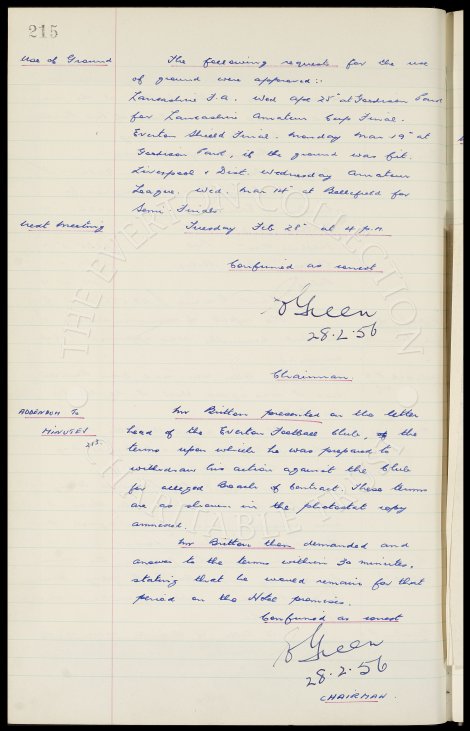 215
Use of Ground
The following requests for the use
of ground were approved:-
Lancashire F.A. Wed Apl 25th at Goodison Park
for Lancashire Amateur Cup Final.
Everton Shield Final. Monday Mar 19th at
Goodison Park, if the ground was fit.
Liverpool & Dist. Wednesday Amateur
League. Wed. Mar 14th at Bellefield for
Semi-Finals.
Next Meeting
Tuesday Feb 28th at 4 p.m.
Confirmed as correct
Green
28.2.56
Chairman.
ADDENDUM TO
MINUTES
213.
Mr Britton presented on the letter
head of the Everton Football Club, of the
terms upon which he was prepared to
withdraw his action against the Club
for alleged Breach of Contract. These terms
are as shown in the photostat copy
annexed.
Mr Britton then demanded and
answer to the terms within 30 minutes,
stating that he would remain for that
period on the Hotel premises.
Confirmed as correct
Green
28.2.56
CHAIRMAN.
THE EVERTON COLLECTION
CHARITABLE TRUST